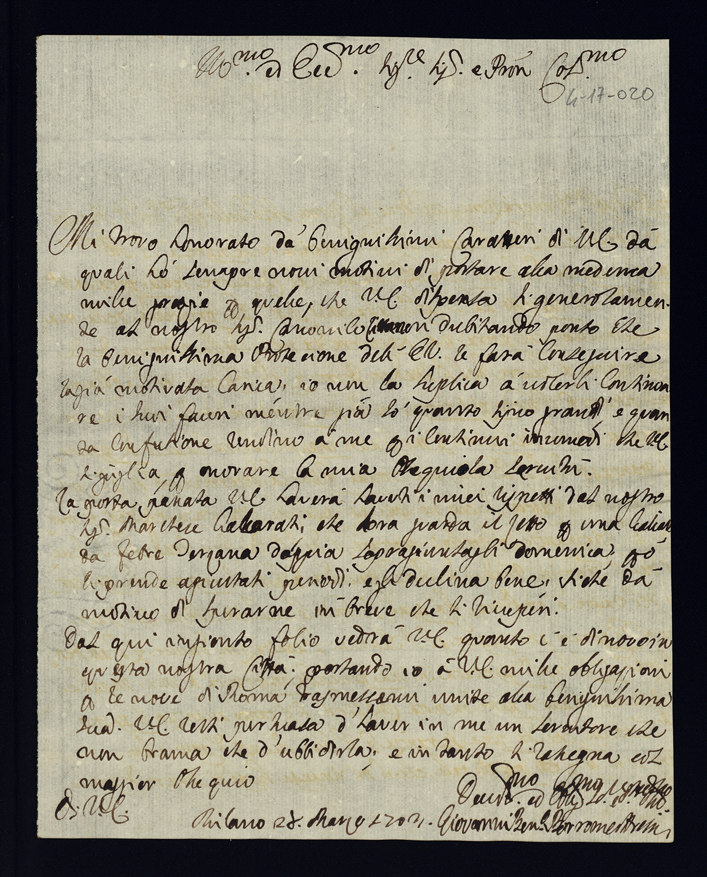 Ill.mo ed Ecc.mo Sig.re Sig. e Pron Col.mo
4-17-020
Mi trovo honorato da benignissimi Caratteri di V.E. da
quali hò sempre novi motivi di portare alla medema
mille grazie p quelle, che V.E. dispensa si generosamen-
te al nostro Sig. Canonico dubitando ponto che
la benignissima Protezione dell' E.V. le farà conseguire
la già motivata Carica, io non la suplico à volerli Continua
re i suoi favori mentre già sò quanto siino grandi e quan
ta confusione rendino à me i Continui incomodi che V.E.
si piglia p onorare la mia Ossequiosa servitù.
La posta passata V.E. haverà havuti i miei rispetti dal nostro
Sig. Marchese che hora guarda il letto p una
da febre Terzana doppia sopragiuntagli domenica, però
si prende agiustati rimedi e gli declina bene, si che dà
motivo di sperarne in breve che si ricuperi.
Dal qui ingionto folio vedrà V.E. quanto c'è di novo in
questa nostra Città. portando io à V.E. mille obligazioni
p le nove di Roma trasmessemi unite alla benignissima
sua. V.E. resti persuasa d'haver in me un servitore che
non brama che d'ubbidirla, e in tanto si rassegna col
maggior Ossequio
Di V.E.
Milano 28. Marzo 1703. Devot.mo ed Obb.mo
Giovanni Ben.